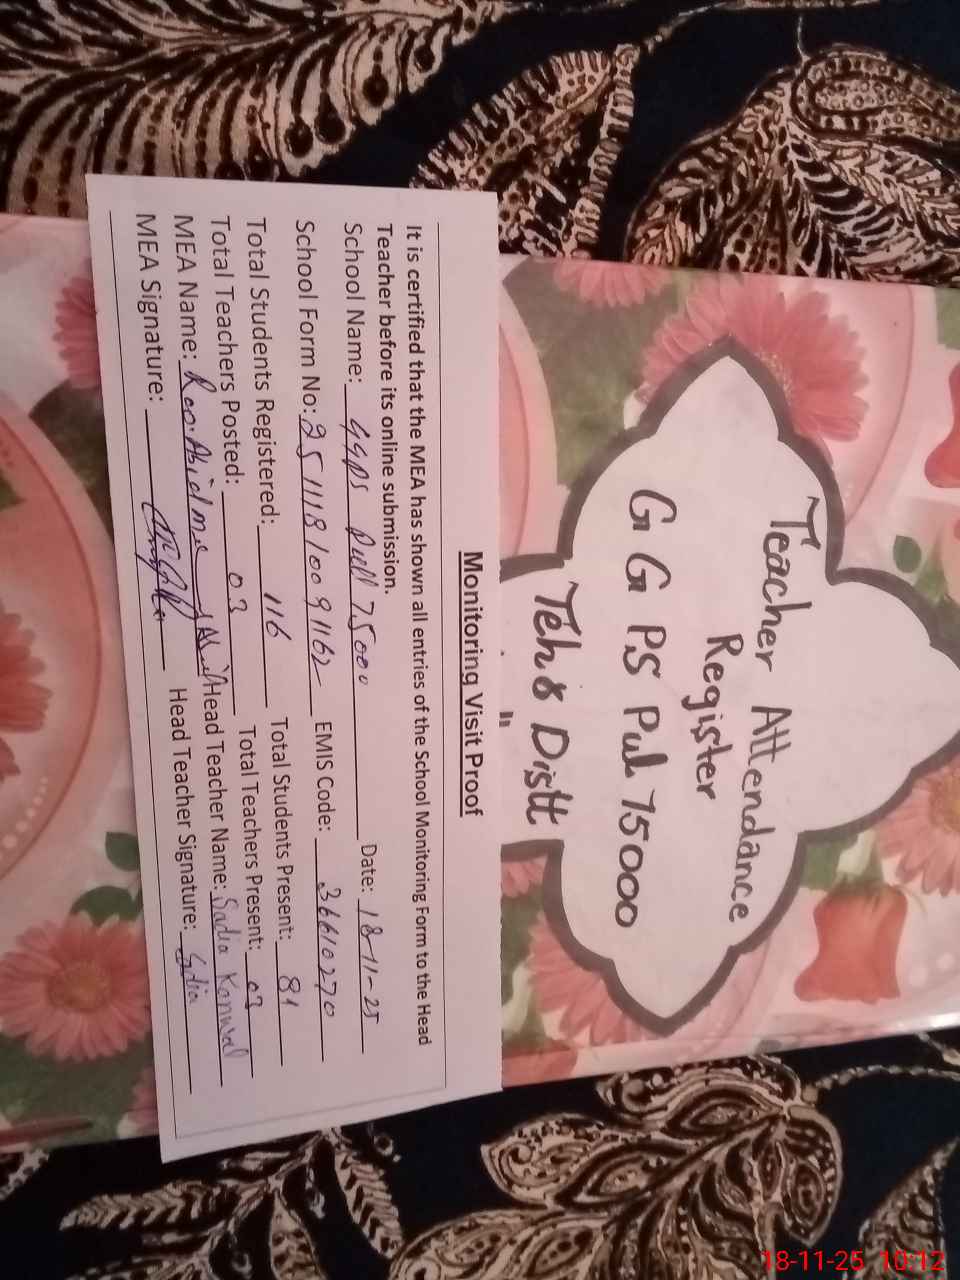 Teacher Attendance
Register
G G PS Pul 75000
Teh & Distt
"
Monitoring Visit Proof
It is certified that the MEA has shown all entries of the School Monitoring Form to the Head
Teacher before its online submission.
School Name: GGPS Pull 75000 Date: 18-11-25
School Form No: 2511181009162 EMIS Code: 36610270
Total Students Registered: 116 Total Students Present: 81
Total Teachers Posted: 03 Total Teachers Present: 03
MEA Name: Head Teacher Name: Sadia Kanwal
MEA Signature: Head Teacher Signature: Sadia
18-11-25 10:12